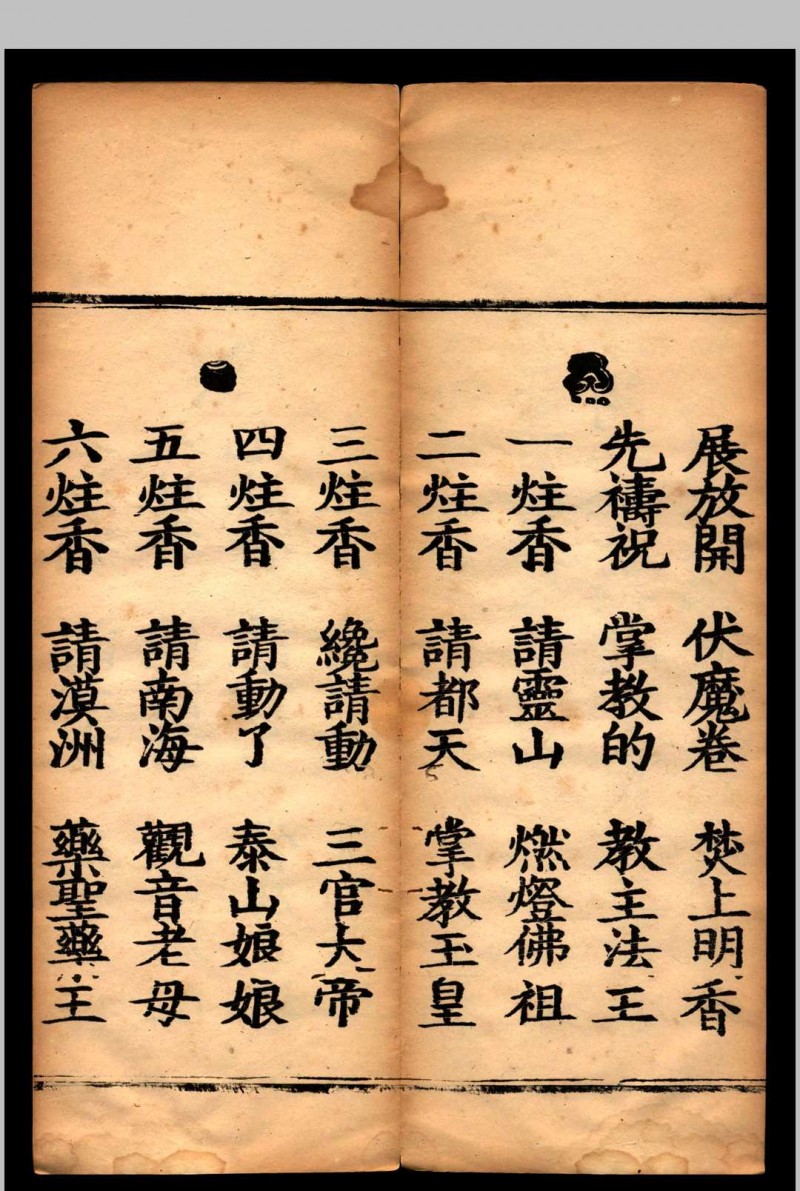 展放開 伏魔卷 焚上明香
先禱祝 掌教的 教主法王
一炷香 請靈山 燃燈佛祖
二炷香 請都天 掌教玉皇
三炷香 纔請動 三官大帝
四炷香 請動了 泰山娘娘
五炷香 請南海 觀音老母
六炷香 請漠洲 藥聖藥王